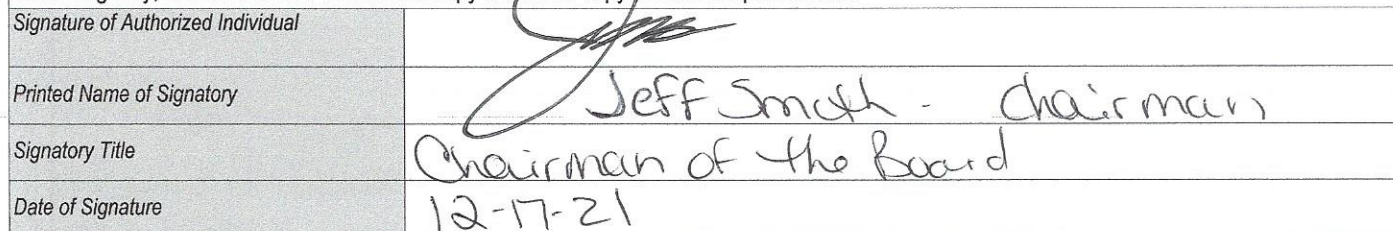 Signature of Authorized Individual
Printed Name of Signatory Jeff Smith - Chairman
Signatory Title Chairman of the Board
Date of Signature 12-17-21